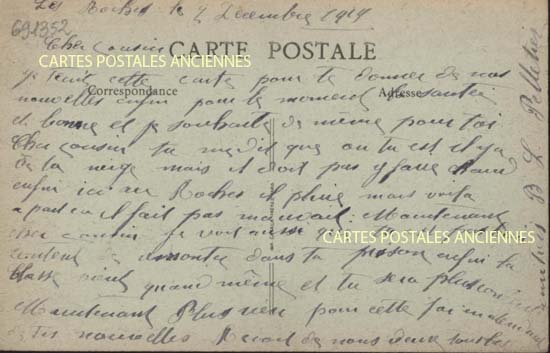 Les Roches le 2 Decembre 1914
691352
Cher cousin
CARTE POSTALE
CARTES POSTALES ANCIENNES
je tecrit cette carte pour te donner de nos
Correspondance
Adresse
nouvelles enfin pour le moment la santée
et bonne et je souhaite de même pour toi
Cher cousin tu me dis que ou tu est il y a
de la neige mais il doit pas y faire chaud
enfin ici au Roches il pleut mais voila
a part ca il fait pas mauvais. Maintenant
cher cousin je voit aussi que
CARTES POSTALES ANCIENNES
content de dans ta enfin ta
classe vient quand même et tu sera plus
Maintenant Plus rien pour cette foi
de tes nouvelles Recoit de nous deux
B L Pelletier